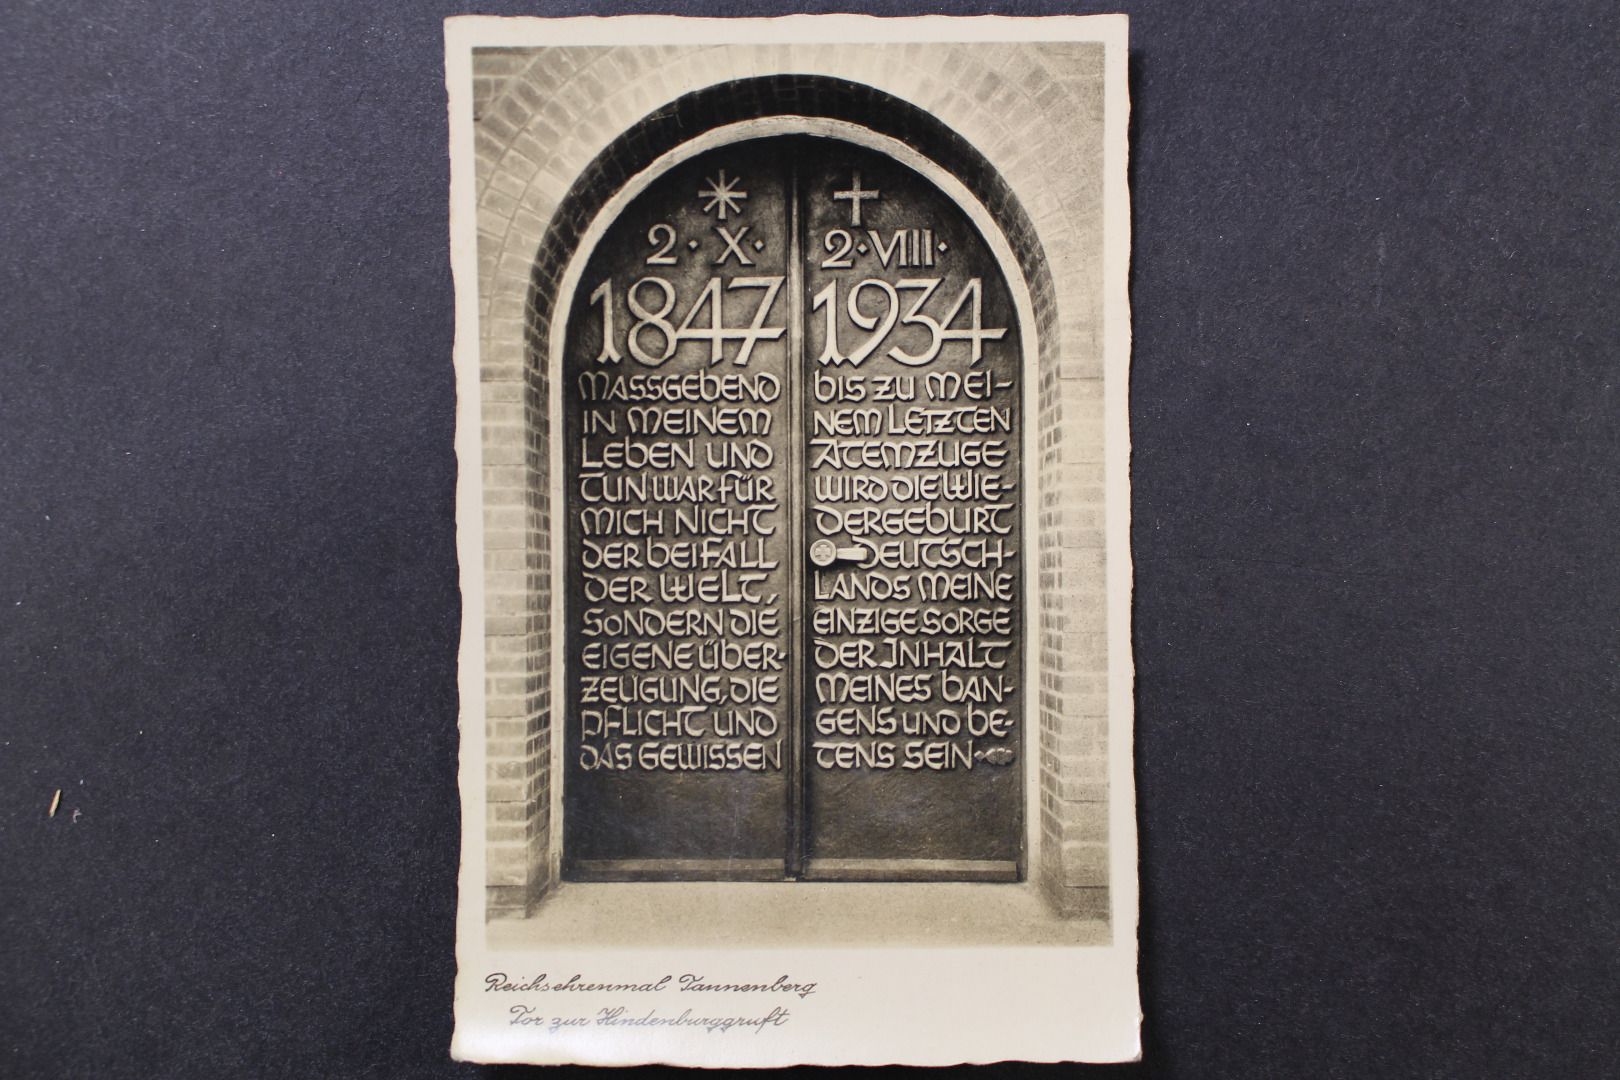 * +
2 · X · 2 · VIII ·
1847 1934
MASSGEBEND
IN MEINEM
LEBEN UND
TUN WAR FÜR
MICH NICHT
DER BEIFALL
DER WELT,
SONDERN DIE
EIGENE ÜBER-
ZEUGUNG, DIE
PFLICHT UND
DAS GEWISSEN
BIS ZU MEI-
NEM LETZTEN
ATEMZUGE
WIRD DIE WIE-
DERGEBURT
DEUTSCH-
LANDS MEINE
EINZIGE SORGE
DER INHALT
MEINES BAN-
GENS UND BE-
TENS SEIN
Reichsehrenmal Tannenberg
Tor zur Hindenburggruft